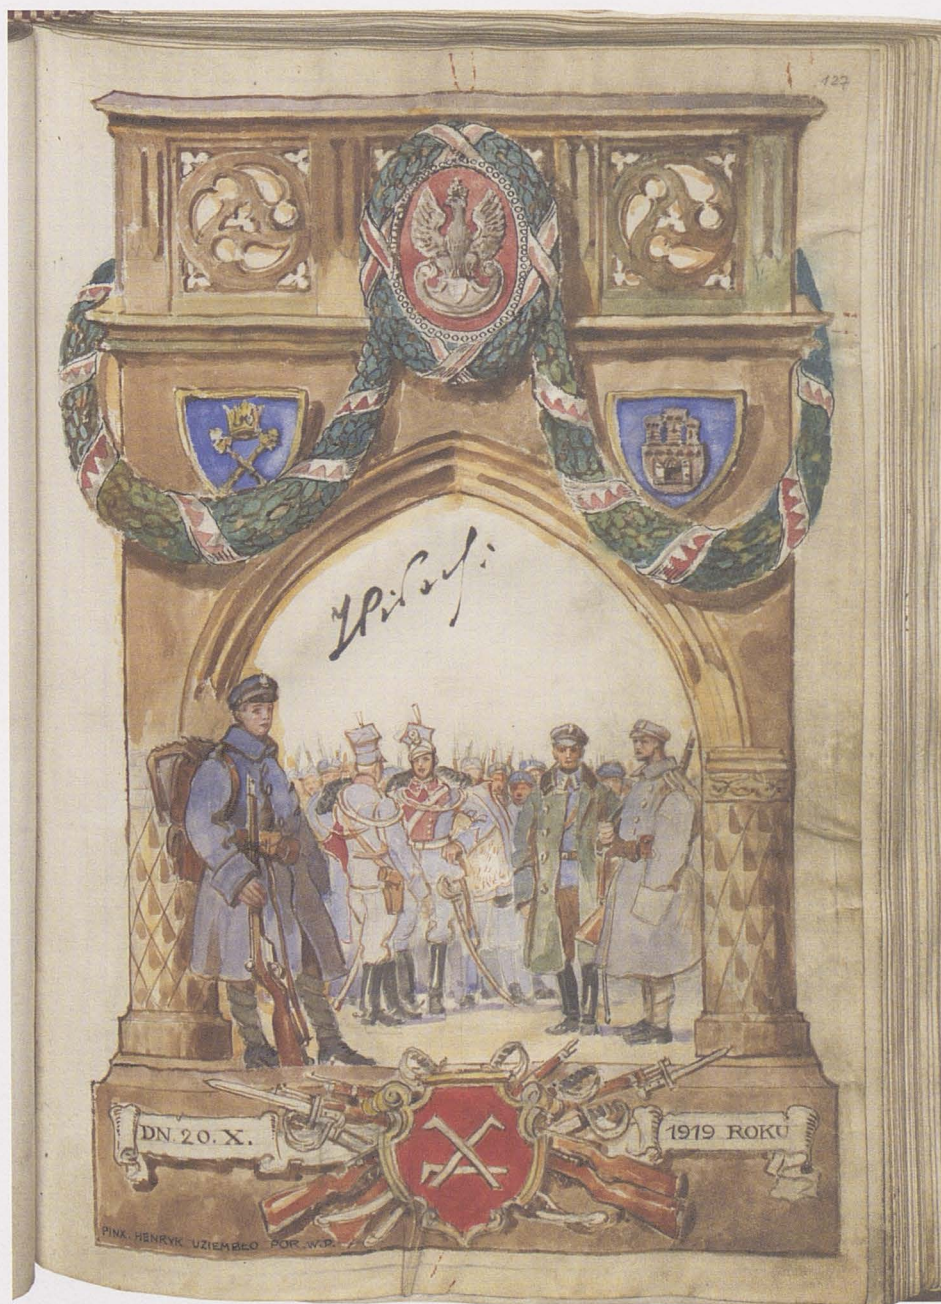 127
DN. 20. X.
1919 ROKU
PINX. HENRYK UZIEMBŁO POR. W.P.